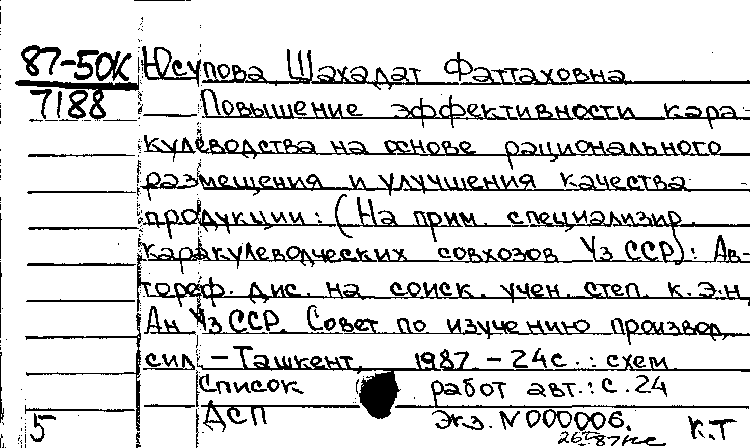 87-50К Юсупова Шахадат Фаттаховна
7188 Повышение эффективности кара-
кулеводства на основе рационального
размещения и улучшения качества
продукции: (На прим. специализир.
каракулеводческих совхозов Уз ССР): Ав-
тореф. дис. на соиск. учен. степ. к.э.н,
Ан Уз ССР. Совет по изучению производ.
сил. – Ташкент, 1987. – 24с.: схем
Список работ авт.: с. 24
5 ДСП Экз. N 000006. К.Т